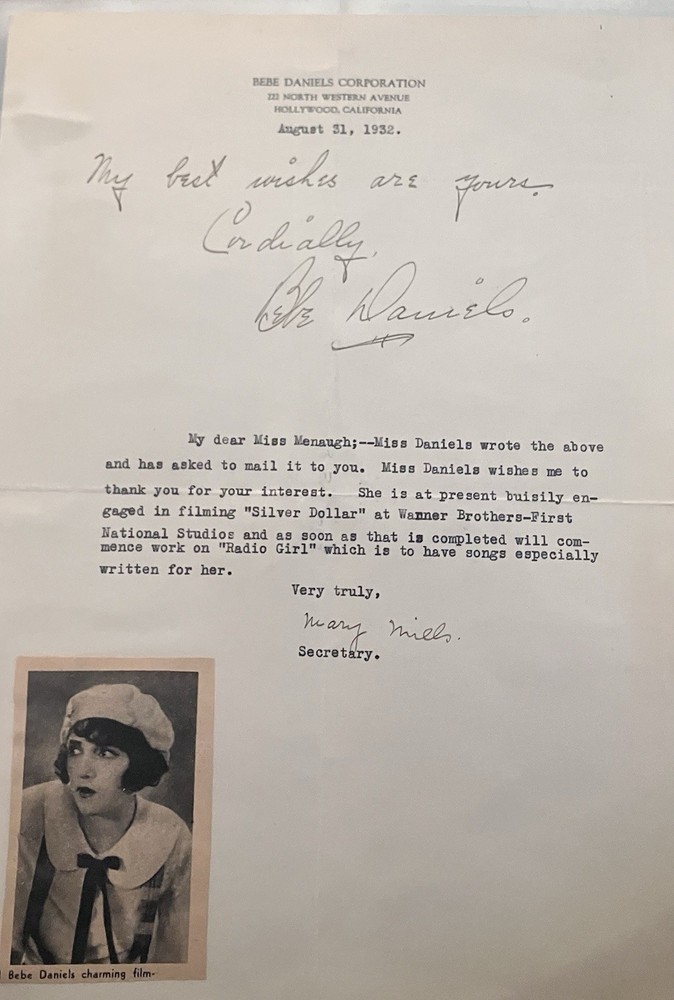 BEBE DANIELS CORPORATION
222 NORTH WESTERN AVENUE
HOLLYWOOD, CALIFORNIA
August 31, 1932.
My best wishes are yours.
Cordially,
Bebe Daniels.
My dear Miss Menaugh;--Miss Daniels wrote the above
and has asked to mail it to you. Miss Daniels wishes me to
thank you for your interest. She is at present buisily en-
gaged in filming "Silver Dollar" at Wanner Brothers-First
National Studios and as soon as that is completed will com-
mence work on "Radio Girl" which is to have songs especially
written for her.
Very truly,
Mary Mills.
Secretary.
Bebe Daniels charming film-